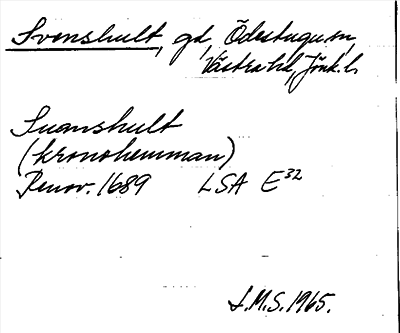 Svenshult, gd, Ödestugu sn,
Västra hd, Jönk. l.
Suanshult
(kronohemman)
Renov. 1689 LSA E32
J.M.S. 1965.